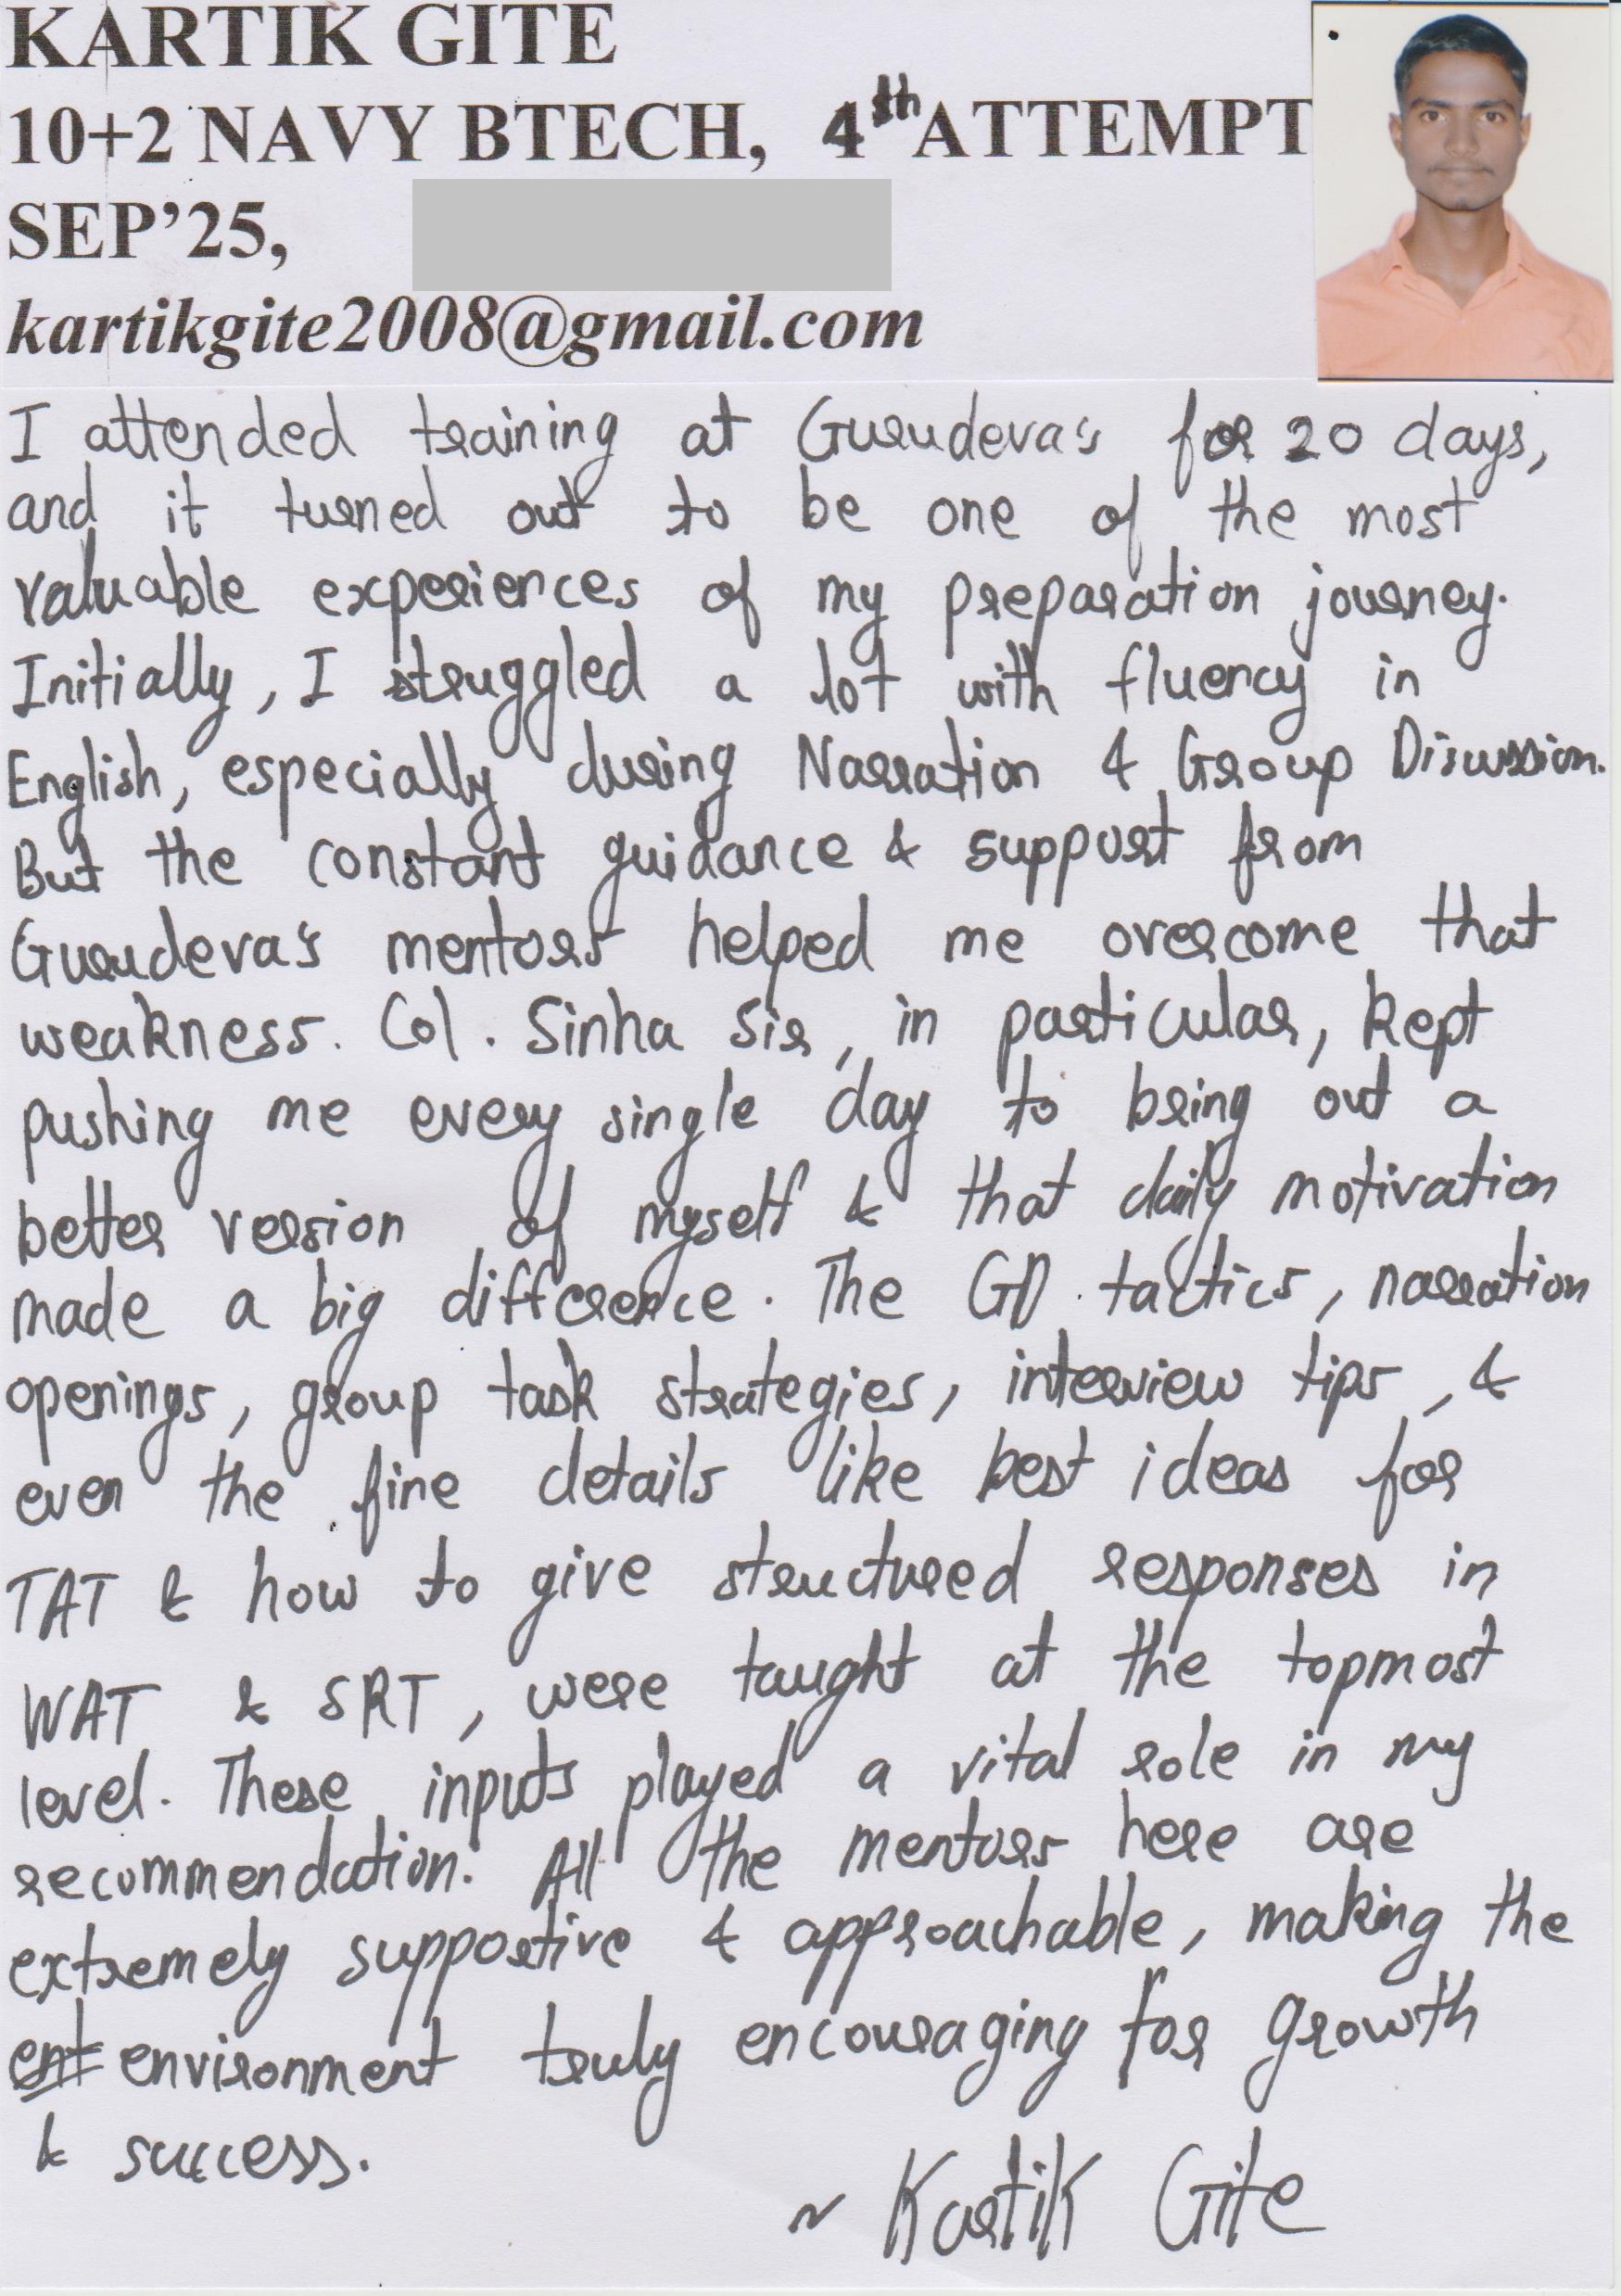 KARTIK GITE
10+2 NAVY BTECH, 4th ATTEMPT
SEP'25,
kartikgite2008@gmail.com
I attended training at Gurudeva's for 20 days,
and it turned out to be one of the most
valuable experiences of my preparation journey.
Initially, I struggled a lot with fluency in
English, especially during Narration & Group Discussion.
But the constant guidance & support from
Gurudeva's mentors helped me overcome that
weakness. Col. Sinha Sir, in particular, kept
pushing me every single day to bring out a
better version of myself & that daily motivation
made a big difference. The GD tactics, narration
openings, group task strategies, interview tips, &
even the fine details like best ideas for
TAT & how to give structured responses in
WAT & SRT, were taught at the topmost
level. These inputs played a vital role in my
recommendation. All the mentors here are
extremely supportive & approachable, making the
ent environment truly encouraging for growth
& success.
~ Kartik Gite